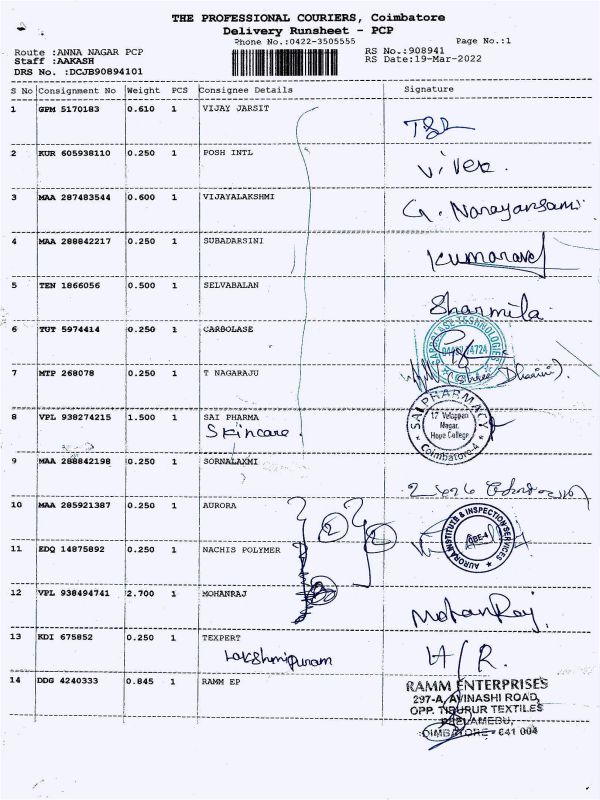 THE PROFESSIONAL COURIERS, Coimbatore
Delivery Runsheet - PCP
Phone No.:0422-3505555 Page No.:1
Route :ANNA NAGAR PCP RS No.:908941
Staff :AAKASH RS Date:19-Mar-2022
DRS No. :DCJB90894101
S No Consignment No Weight PCS Consignee Details Signature
1 GPM 5170183 0.610 1 VIJAY JARSIT
2 KUR 605938110 0.250 1 POSH INTL
3 MAA 287483544 0.600 1 VIJAYALAKSHMI G. Narayansami
4 MAA 288842217 0.250 1 SUBADARSINI Kumaravel
5 TEN 1866056 0.500 1 SELVABALAN Sharmila
6 TUT 5974414 0.250 1 CARBOLASE CARBOLASE TECHNOLOGIES
7 MTP 268078 0.250 1 T NAGARAJU
8 VPL 938274215 1.500 1 SAI PHARMA SAI PHARMACY
Skincare. 17 Velappan
Nagar,
Hope College
Coimbatore-4
9 MAA 288842198 0.250 1 SORNALAXMI
10 MAA 285921387 0.250 1 AURORA AURORA INSTITUTE & INSPECTION SERVICES
CBE-4
2 2
11 EDQ 14875892 0.250 1 NACHIS POLYMER
12 VPL 938494741 2.700 1 MOHANRAJ MohanRaj.
13 KDI 675852 0.250 1 TEXPERT H/R.
Lakshmipuram
14 DDG 4240333 0.845 1 RAMM EP RAMM ENTERPRISES
297-A, AVINASHI ROAD,
OPP. TIRUPUR TEXTILES
PEELAMEDU,
COIMBATORE - 641 004